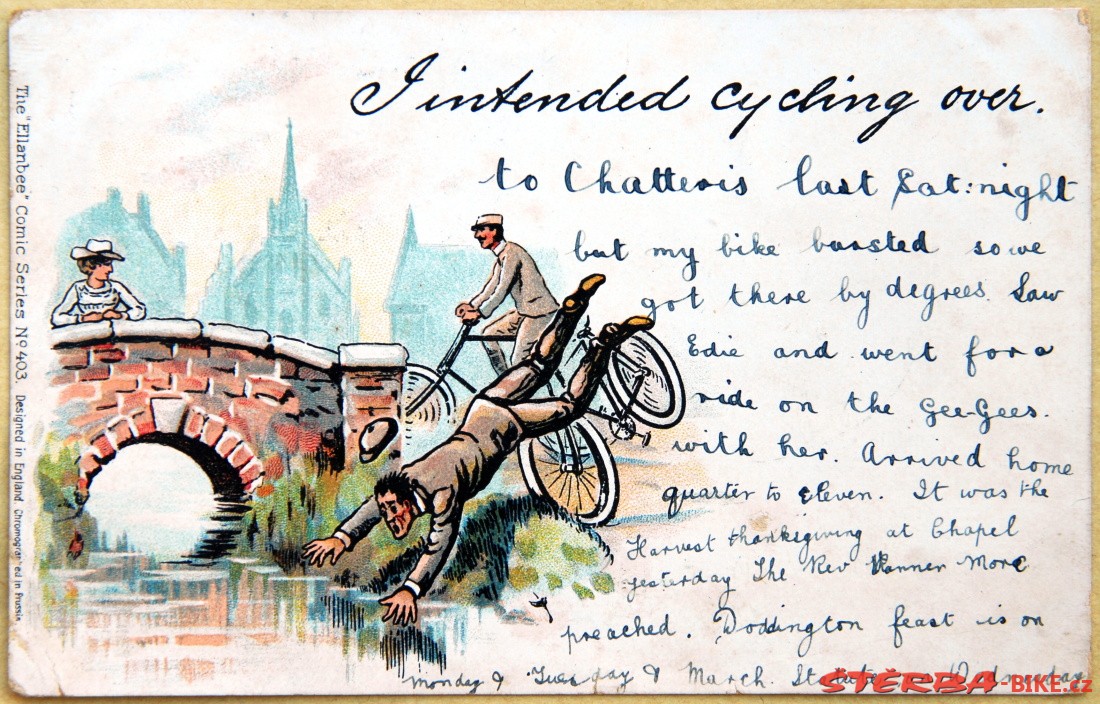 I intended cycling over.
to Chatteris last Sat: night
but my bike bursted so we
got there by degrees. Saw
Edie and went for a
ride on the Gee-Gees.
with her. Arrived home
quarter to eleven. It was the
Harvest thanksgiving at Chapel
yesterday The Rev More
preached. Doddington feast is on
Monday & Tuesday & March. Wednesday
The "Ellanbee" Comic Series No 403. Designed in England Chromographed in Prussia
ŠTĚRBA-BIKE.cz